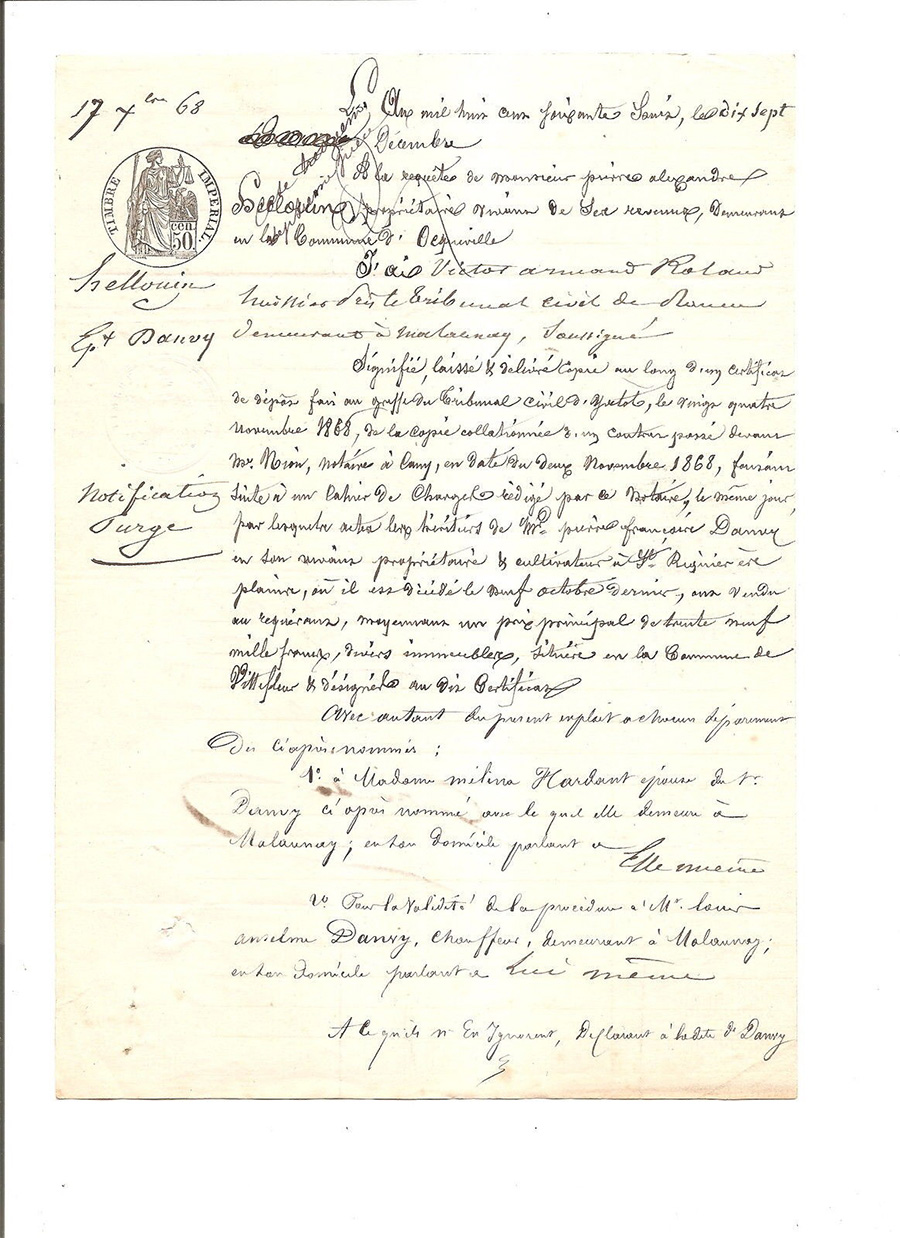 17 Xbre 68
TIMBRE IMPERIAL
50 cen.
hellouin
Ept Danvy
Notification
Purge
L'an mil huit cent soixante huit, le dix sept
Décembre
A la requête de monsieur pierre alexandre
Hellouin, propriétaire vivant de ses revenus, demeurant
en la Commune d' Ocqueville
J'ai Victor armand Roland
huissier près le tribunal civil de Rouen
demeurant à malaunay, soussigné
Signifié, laissé & délivré copie au long d'un certificat
de dépôt fait au greffe du Tribunal civil d'Yvetot, le vingt quatre
Novembre 1868, de la copie collationnée d'un contrat passé devant
Me. Nion, notaire à Cany, en date du deux Novembre 1868, faisant
suite à un Cahier de Charges rédigé par ce Notaire, le même jour
par lesquels actes les héritiers de Mr. pierre françois Danvy
en son vivant propriétaire & cultivateur à St. Riquier ès
plains, où il est décédé le neuf octobre dernier, ont vendu
au requérant, moyennant un prix principal de trente neuf
mille francs, divers immeubles, situés en la Commune de
Vittefleur & désignés au dit Certificat
Avec autant du présent exploit a chacun séparement
des ci après nommés ;
1°. à Madame mélina Hardant épouse du sr.
Danvy ci après nommé avec le quel elle demeure à
Malaunay ; en son domicile parlant a
Elle même
2o. Pour la Validité de la procédure a Mr. louis
anselme Danvy, chauffeur, demeurant à Malaunay ;
en son domicile parlant a lui même
A ce qu'ils n' En Ignorent, Déclarant à la dite de Danvy